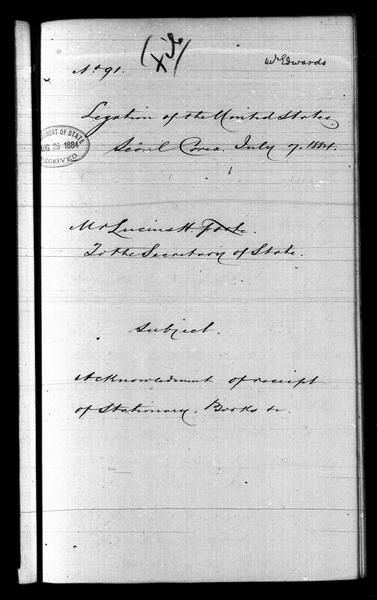 Mr Edwards
No 91.
Legation of the United States.
DEP'T OF STATE
AUG 26 1884
RECEIVED
Séoul Corea, July 7, 1884.
Mr Lucius H. Foote.
To the Secretary of State.
Subject.
Acknowledment of receipt
of Stationary. Books &c.